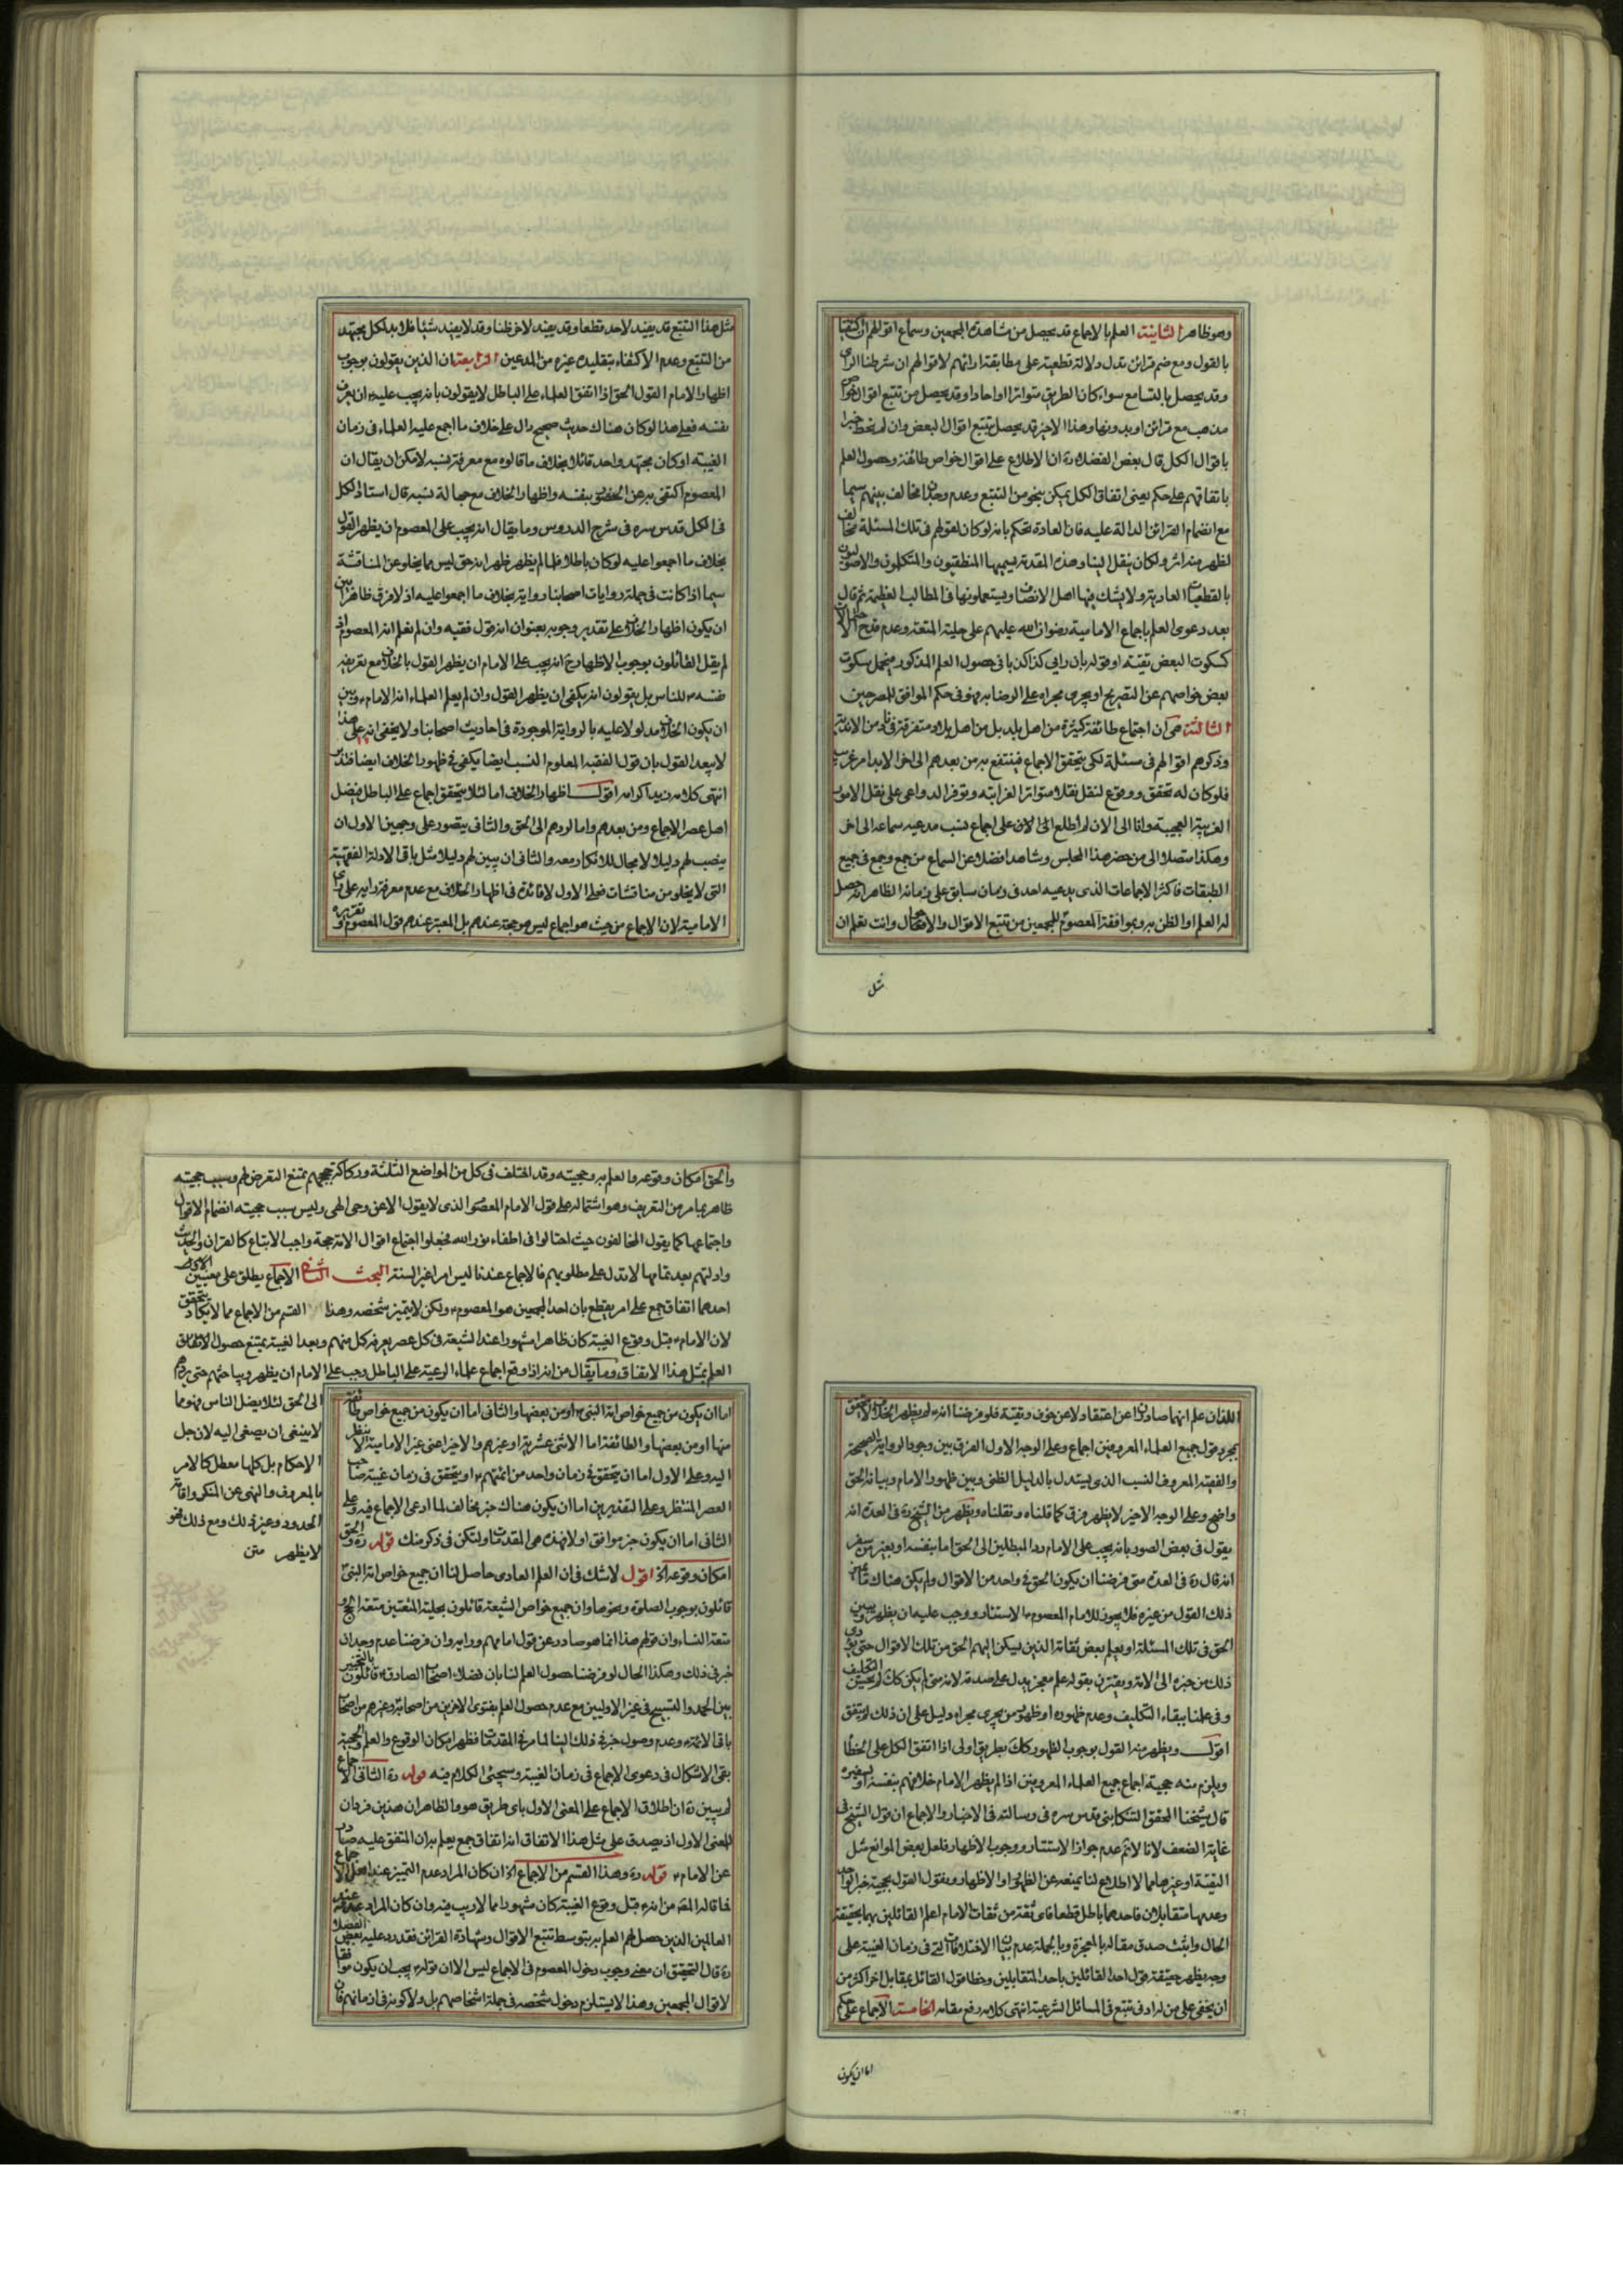 وهو ظاهر الثانية العلم بالاجماع قد يحصل من مشاهدة المجمعين وسماع اقوالهم ان اكتفينا
بالقول ومع ضم قرائن تدل دلالة قطعية على مطابقة ارائهم لاقوالهم ان شرطنا الراى
وقد يحصل بالتسامع سواء كان الطريق متواترا او احادا وقد يحصل من تتبع اقوال خواص
مذهب مع قرائن او بدونها وهذا الاخير قد يحصل بتتبع اقوال البعض وان لم نحط خبرا
باقوال الكل قال بعض الفضلاء ره ان الاطلاع على اقوال خواص طائفة وحصول العلم
باتفاقهم على حكم يعنى اتفاق الكل يمكن بنحو من التتبع وعدم وجدان مخالف بينهم سيما
مع انضمام القرائن الدالة عليه فان العادة تحكم بانه لو كان لقولهم فى تلك المسئلة مخالف
لظهر منه اثر ولكان ينقل الينا وهذه المقدمة يسميها المنطقيون والمتكلمون والاصوليون
بالقطعيات العادية ولا يشك فيها اهل الانصاف ويستعملونها فى المطالب العظيمة ثم قال
بعد دعوى العلم باجماع الامامية رضوان الله عليهم على حلية المتعة وعدم قدح
كسكوت البعض تقية او قوله بان رايى كذا كذبا فى حصول العلم المذكور فيحمل سكوت
بعض خواصهم عن التصريح او يجرى مجراه على الرضا به فهو فى حكم الموافق المصرحين
الثالثة هى ان اجتماع طائفة كثيرة من اهل بلد بل من اهل بلاد متفرقة فى
وذكرهم اقوالهم فى مسئلة لكى يتحقق الاجماع فينتفع به من بعدهم الى اخر الابد امر غريب
فلو كان له تحقق ووقوع لنقل نقلا متواترا لغرابته وتوفر الدواعى على نقل الامور
الغريبة العجيبة وانا الى الان لم اطلع الى الان على اجماع نسب مدعيه سماعه الى اخر
وهكذا متصلا الى من حضر هذا المجلس وشاهد افضلا عن السماع من جمع وجمع فى جميع
الطبقات فاكثر الاجماعات الذى يدعيه احد فى زمان سابق على زمانه الظاهر انه حصل
له العلم او الظن به وبموافقة المعصوم للمجمعين من تتبع الاقوال والافعال وانت تعلم ان
مثل
مثل هذا التتبع قد يفيد لاحد قطعا وقد يفيد لاخر ظنا وقد لا يفيد شيئا فلا بد لكل مجتهد
من التتبع وعدم الاكتفاء بتقليد غيره من المدعين الرابعة ان الذين يقولون بوجوب
اظهار الامام القول الحق اذا اتفق العلماء على الباطل لا يقولون بانه يجب عليه ان يعرف
نفسه فعلى هذا لو كان هناك حديث صحيح دال على خلاف ما اجمع عليه العلماء فى زمان
الغيبة او كان مجتهد واحد قائلا بخلاف ما قالوه مع معرفة نسبه لامكن ان يقال ان
المعصوم اكتفى به عن الحضور بنفسه واظهار الخلاف مع جهالة نسبه قال استاد الكل
فى الكل قدس سره فى شرح الدروس وما يقال انه يجب على المعصوم ان يظهر القول
بخلاف ما اجمعوا عليه لو كان باطلا فلما لم يظهر ظهر انه حق ليس مما يخلو عن المناقشة
سيما اذا كانت فى جملة روايات اصحابنا رواية بخلاف ما اجمعوا عليه اذ لا فرق ظاهرا بين
ان يكون اظهار الخلاف على تقدير وجوبه بعنوان انه قول فقيه وان لم نعلم انه المعصوم اذ
لم يقل القائلون بوجوب الاظهار انه يجب على الامام ان يظهر القول بالخلاف مع تعريف
نفسه للناس بل يقولون انه يكفى ان يظهر القول وان لم يعلم العلماء انه الامام وبين
ان يكون الخلاف مدلولا عليه بالرواية الموجودة فى احاديث اصحابنا ولا يخفى انه على هذا
لا يبعد القول بان قول الفقيه المعلوم النسب ايضا يكفى فى ظهور الخلاف ايضا فتدبر
انتهى كلامه زيد اكرامه اقول اظهار الخلاف اما لئلا يتحقق اجماع على الباطل فيضل
اهل عصر الاجماع ومن بعدهم واما لردهم الى الحق والثانى يتصور على وجهين الاول ان
ينصب لهم دليلا لا مجال للانكار معه والثانى ان يبين لهم دليلا مثل باقى الادلة الفقهية
التى لا يخلو من مناقشات فعلى الاول لا فائدة فى اظهار الخلاف مع عدم معرفة رايه على راى
الامامية لان الاجماع من حيث هو اجماع ليس هو حجة عندهم بل المعتبر عندهم قول المعصوم و تقريره
اللذان علم انهما صادران عن اعتقاد لا عن خوف وتقية فلو فرضنا انه لم يظهر الخلاف لا يتحقق
بمجرد قول جميع العلماء المعروفين اجماع وعلى الوجه الاول الفرق بين وجود الرواية الصحيحة
والفقيه المعروف النسب الذى يستدل بالدليل الظنى وبين ظهور الامام وبيانه الحق
واضح وعلى الوجه الاخير لا يظهر فرق كما قلناه ونقلناه ويظهر من الشيخ ره فى العدة انه
يقول فى بعض الصور بانه يجب على الامام رد المبطلين الى الحق اما بنفسه او بغيره
انه قال ره فى العدة متى فرضنا ان يكون الحق فى واحد من الاقوال ولم يكن هناك
ذلك القول من غيره فلا يجوز للامام المعصوم الاستتار ووجب عليه ان يظهر ويبين
الحق فى تلك المسئلة او يعلم بعض ثقاته الذين يسكن اليهم الحق من تلك الاقوال حتى يؤدى
ذلك من خبره الى الامة ويقترن بقوله علم معجز يدل على صدقه لانه متى لم يكن كك لم يحسن التكليف
وفى علمنا ببقاء التكليف وعدم ظهوره او ظهور من يجرى مجراه دليل على ان ذلك لم يتفق
اقول ويظهر منه القول بوجوب الظهور كك بطريق اولى اذا اتفق الكل على الخطأ
ويلزم منه حجية اجماع جميع العلماء المعروفين اذا لم يظهر الامام خلافهم بنفسه او بسفيره
قال شيخنا المحقق التنكابنى قدس سره فى رسالته فى الاخبار والاجماع ان قول الشيخ فى
غاية الضعف لانا لا نم عدم جواز الاستتار ووجوب الاظهار فلعل بعض الموانع مثل
التقية او غيرها مما لا اطلاع لنا يمنعه عن الظهور او الاظهار ونقول القول بحجية خبر الواحد
وعدمها متقابلان فاحدهما باطل قطعا فاى ثقة من ثقات الامام اعلم القائلين بهما بحقيقة
الحال واثبت صدق مقاله بالمعجزة وبالجملة عدم بيان الاختلافات التى فى زمان الغيبة على
وجه يظهر حقيقة قول احد القائلين باحد المتقابلين وخطا قول القائل بمقابل اخر اكثر من
ان يخفى على من له ادنى تتبع فى المسائل الشرعية انتهى كلامه رفع مقامه الخامسة الاجماع على حكم
اما ان يكون
والحق امكان وقوعه والعلم به وحجيته وقد اختلف فى كل من المواضع الثلثة وركاكة حججهم تمنع التعرض لهم وسبب حجيته
ظاهر مما مر من التعريف وهو اشتماله على قول الامام المعصوم الذى لا يقول الا عن وحى الهى وليس سبب حجيته انضمام الاقوال
واجتماعها كما يقول المخالفون حيث احتالوا فى اطفاء نور الله فجعلوا اجتماع اقوال الامة حجة واجب الاتباع كالقران والحديث
وادلتهم بعد تمامها لا تدل على مطلوبهم فالاجماع عندنا ليس امرا غير السنة البحث الثانى الاجماع يطلق على معنيين
احدهما اتفاق جمع على امر يقطع بان احد المجمعين هو المعصوم ولكن لا يتميز شخصه وهذا القسم من الاجماع مما لا يكاد يتحقق
لان الامام قبل وقوع الغيبة كان ظاهرا مشهورا عند الشيعة فى كل عصر يعرفه كل منهم وبعد الغيبة يمتنع حصول الاتفاق
العلم بمثل هذا الاتفاق وما يقال من انه اذا وقع اجماع علماء الرعية على الباطل وجب على الامام ان يظهر ويباحثهم حتى يردهم
الى الحق لئلا يضل الناس فهو مما
لا ينبغى ان يصغى اليه لان جل
الاحكام بل كلها معطل كالامر
بالمعروف والنهى عن المنكر واقامة
الحدود وغير ذلك ومع ذلك فهو
لا يظهر متن
اما ان يكون من جميع خواص امة النبى او من بعضها والثانى اما ان يكون من جميع خواص طائفة
منها او من بعضها والطائفة اما الاثنى عشرية او غيرهم والاخير اعنى غير الامامية لا ينظر
اليه وعلى الاول اما ان يتحقق فى زمان واحد من ائمتهم او يتحقق فى زمان غيبة صاحب
العصر المنتظر وعلى التقديرين اما ان يكون هناك خبر مخالف لما ادعى الاجماع فيه وعلى
الثانى اما ان يكون خبر موافق اولا فهذه هى المقدمات ولتكن فى ذكر منك قوله ره والحق
امكان وقوعه الخ اقول لا شك فى ان العلم العادى حاصل لنا ان جميع خواص امة النبى
قائلون بوجوب الصلوة ونحوها وان جميع خواص الشيعة قائلون بحلية المتعتين متعة الحج و
متعة النساء وان قولهم هذا انما هو صادر عن قول امامهم ورايه وان فرضنا عدم وجدان
خبر فى ذلك وهكذا الحال لو فرضنا حصول العلم لنا بان فضلاء اصحاب الصادق قائلون بالتخيير
بين الحمد والتسبيح فى غير الاوليين مع عدم حصول العلم بفتوى الاخرين من اصحابه وغيرهم من اصحاب
باقى الائمة وعدم وصول خبر فى ذلك الينا لما مر فى المقدمات فظهر امكان الوقوع والعلم والحجية
بقى الاشكال فى دعوى الاجماع فى زمان الغيبة وسيجئ الكلام فيه قوله ره الثانى الاجماع
لم يبين ره ان اطلاق الاجماع على المعنى الاول باى طريق هو والظاهر ان هذين فردان
للمعنى الاول اذ يصدق على مثل هذا الاتفاق انه اتفاق جمع يعلم به ان المتفق عليه صادر
عن الامام قوله ره وهذا القسم من الاجماع الخ ان كان المراد عدم التميز عند اهل الاجماع
فما قاله المص من انه قبل وقوع الغيبة كان مشهورا مما لا ريب فيه وان كان المراد عدمه عند
العالمين الذين حصل لهم العلم به بتوسط تتبع الاقوال وشهادة القرائن فقد رد عليه بعض الفضلاء
ره قال التحقيق ان معنى وجوب دخول المعصوم فى الاجماع ليس الا ان قوله يجب ان يكون موافقا
لاقوال المجمعين وهذا لا يستلزم دخول شخصه فى جملة اشخاصهم بل ولا كونه فى ازمانهم فان